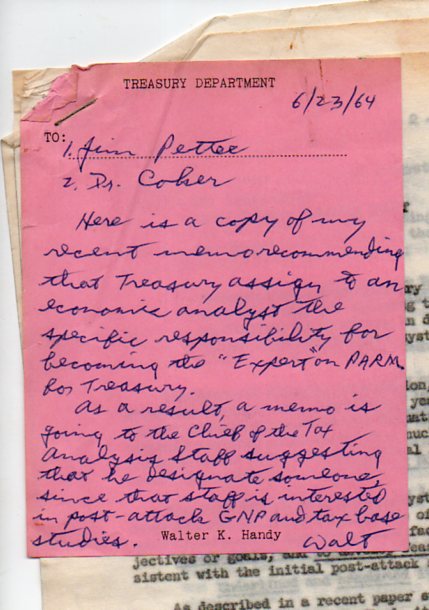 TREASURY DEPARTMENT
6/23/64
TO:
1. Jim Pettee
2. Dr. Coker
Here is a copy of my
recent memo recommending
that Treasury assign to an
economic analyst the
specific responsibility for
becoming the "Expert" on PARM
for Treasury.
As a result, a memo is
going to the Chief of the Tax
Analysis Staff suggesting
that he designate someone,
since that staff is interested
in post-attack GNP and tax base
studies.
Walter K. Handy
Walt
jectives or goals, and to
sistent with the initial post-attack
As described in a recent paper